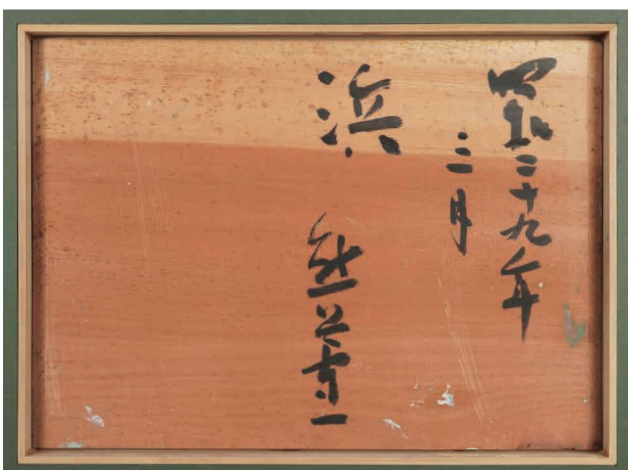 昭和二十九年
三月
浜
熊谷守一